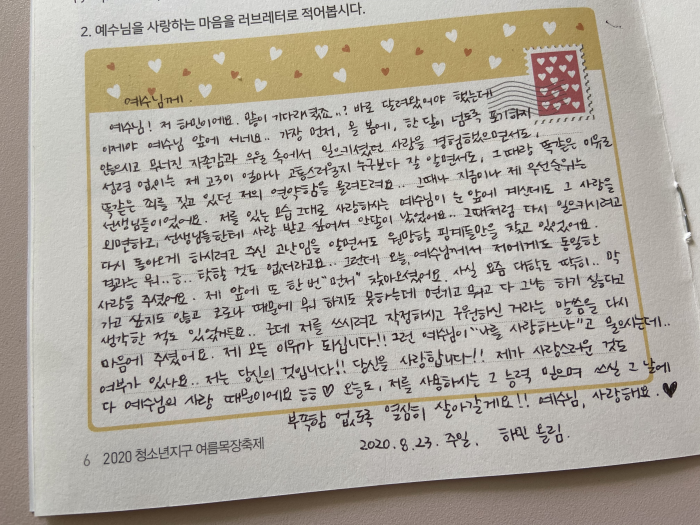 2. 예수님을 사랑하는 마음을 러브레터로 적어봅시다.
예수님께.
예수님! 저 하민이에요. 많이 기다리셨죠..? 바로 달려왔어야 했는데
이제야 예수님 앞에 서네요.. 가장 먼저, 올 봄에, 한 달이 넘도록 포기하지
않으시고 무너진 자존감과 우울 속에서 일으키셨던 사랑을 경험했으면서도,
성령 없이는 제 고3이 얼마나 고통스러울지 누구보다 잘 알면서도, 그때랑 똑같은 이유로
똑같은 죄를 짓고 있던 저의 연약함을 올려드려요.. 그때나 지금이나 제 우선순위는
선생님들이었어요. 저를 있는 모습 그대로 사랑하시는 예수님이 눈 앞에 계신데도 그 사랑을
외면하고, 선생님들한테 사랑 받고 싶어서 안달이 났었어요.. 그때처럼 다시 일으키시려고
다시 돌아오게 하시려고 주신 고난임을 알면서도 원망할 핑계들만을 찾고 있었어요.
결과는 뭐..ㅎ.. 탓할 것도 없더라고요.. 그런데 오늘, 예수님께서 저에게도 동일한
사랑을 주셨어요. 제 앞에 또 한 번 "먼저" 찾아오셨어요. 사실 요즘 대학도 딱히.. 막
가고 싶지도 않고 코로나 때문에 뭐 하지도 못하는데 연기고 뭐고 다 그냥 하기 싫다고
생각한 적도 있었거든요.. 근데 저를 쓰시려고 작정하시고 구원하신 거라는 말씀을 다시
마음에 주셨어요. 제 모든 이유가 되십니다!! 그런 예수님이 "나를 사랑하느냐"고 물으시는데..
여부가 있나요.. 저는 당신의 것입니다!! 당신을 사랑합니다!! 제가 사랑스러운 것도
다 예수님의 사랑 때문이에요 ㅎㅎ♡ 오늘도, 저를 사용하시는 그 능력 믿으며 쓰실 그 날에
부족함 없도록 열심히 살아갈게요!! 예수님, 사랑해요. ♥
2020. 8. 23. 주일. 하민 올림.
6 2020 청소년지구 여름목장축제